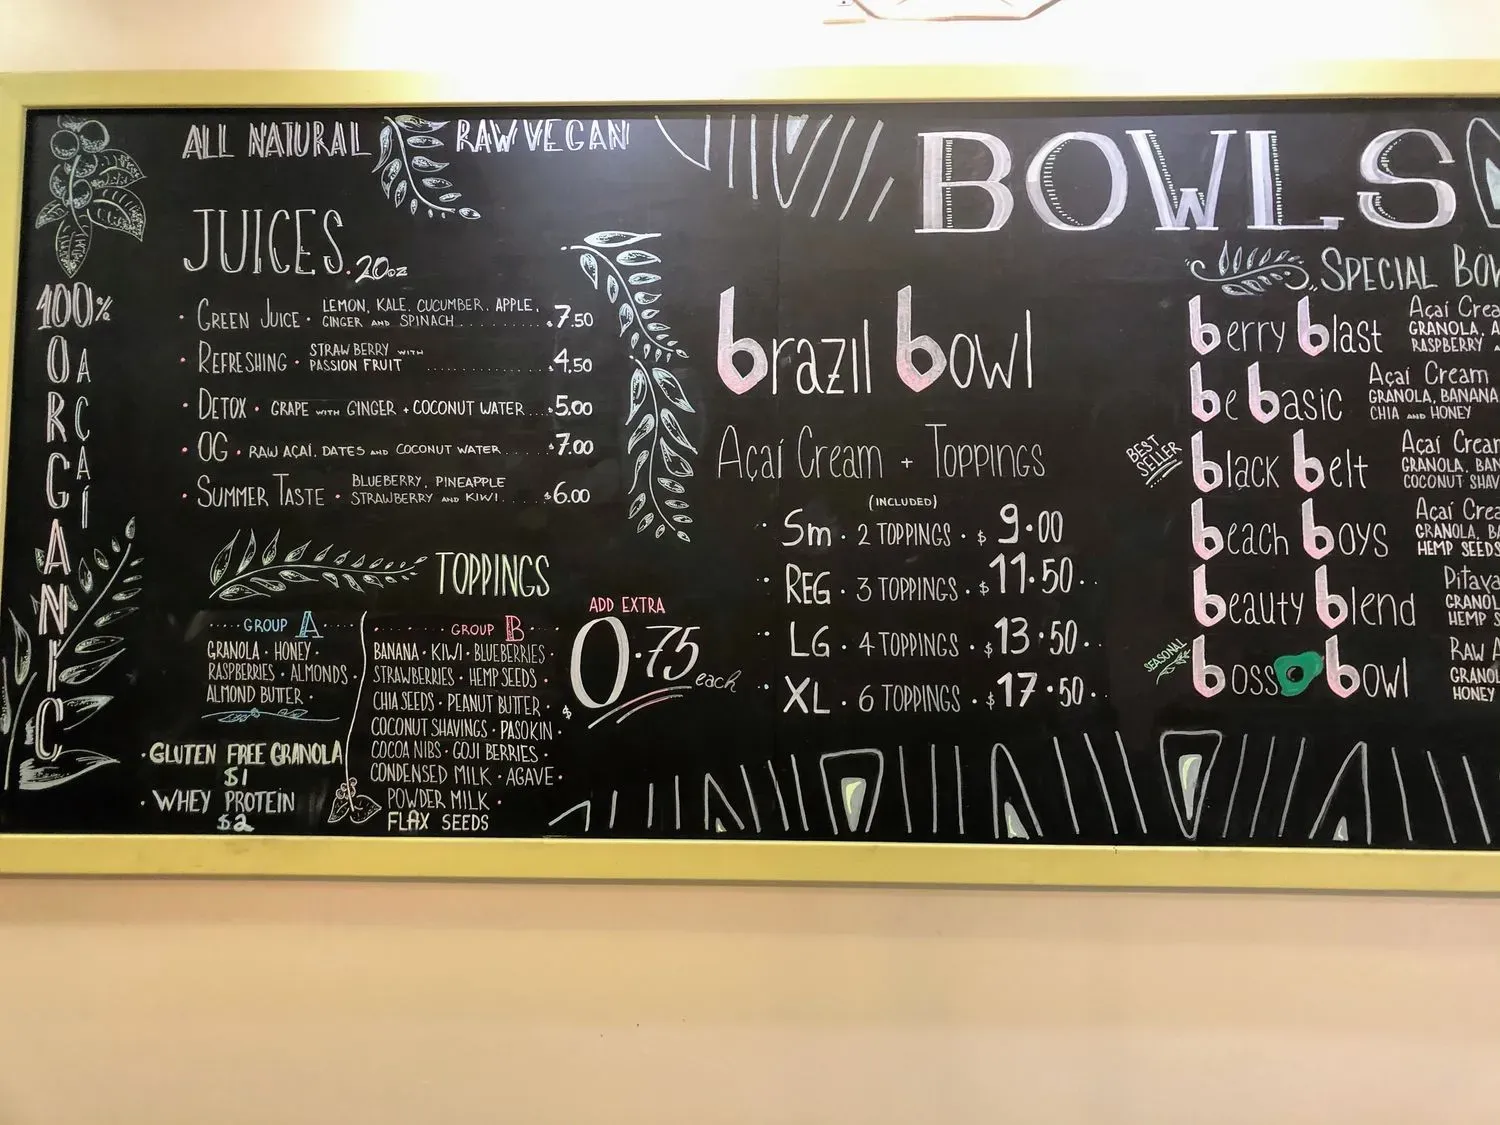 ALL NATURAL RAW VEGAN
100%
ORGANIC
AÇAÍ
JUICES. 20oz
· GREEN JUICE · LEMON, KALE, CUCUMBER, APPLE,
GINGER AND SPINACH ........... $7.50
· REFRESHING · STRAWBERRY WITH
PASSION FRUIT ............... $4,50
· DETOX · GRAPE WITH GINGER + COCONUT WATER .... $5.00
· OG · RAW AÇAÍ, DATES AND COCONUT WATER ..... $7.00
· SUMMER TASTE · BLUEBERRY, PINEAPPLE
STRAWBERRY AND KIWI .... $6.00
TOPPINGS
GROUP A
GRANOLA · HONEY ·
RASPBERRIES · ALMONDS ·
ALMOND BUTER ·
· GLUTEN FREE GRANOLA
$1
· WHEY PROTEIN
$2
GROUP B
BANANA · KIWI · BLUEBERRIES ·
STRAWBERRIES · HEMP SEEDS ·
CHIA SEEDS · PEANUT BUTTER ·
COCONUT SHAVINGS · PASOKIN ·
COCOA NIBS · GOJI BERRIES ·
CONDENSED MILK · AGAVE ·
POWDER MILK ·
FLAX SEEDS
ADD EXTRA
$0.75 each
BOWLS
brazil bowl
Açaí Cream + TOPPINGS
(INCLUDED)
Sm · 2 TOPPINGS · $ 9.00
REG · 3 TOPPINGS · $ 11.50
LG · 4 TOPPINGS · $ 13.50
XL · 6 TOPPINGS · $ 17.50
SPECIAL BOW
berry blast Açaí Crea
GRANOLA, A
RASPBERRY
be basic Açaí Cream
GRANOLA, BANANA
CHIA AND HONEY
BEST SELLER
black belt Açaí Cream
GRANOLA, BAN
COCONUT SHAV
beach boys Açaí Crea
GRANOLA, BA
HEMP SEEDS
beauty blend Pitaya
GRANOL
HEMP S
SEASONAL
boss bowl RAW A
GRANOL
HONEY